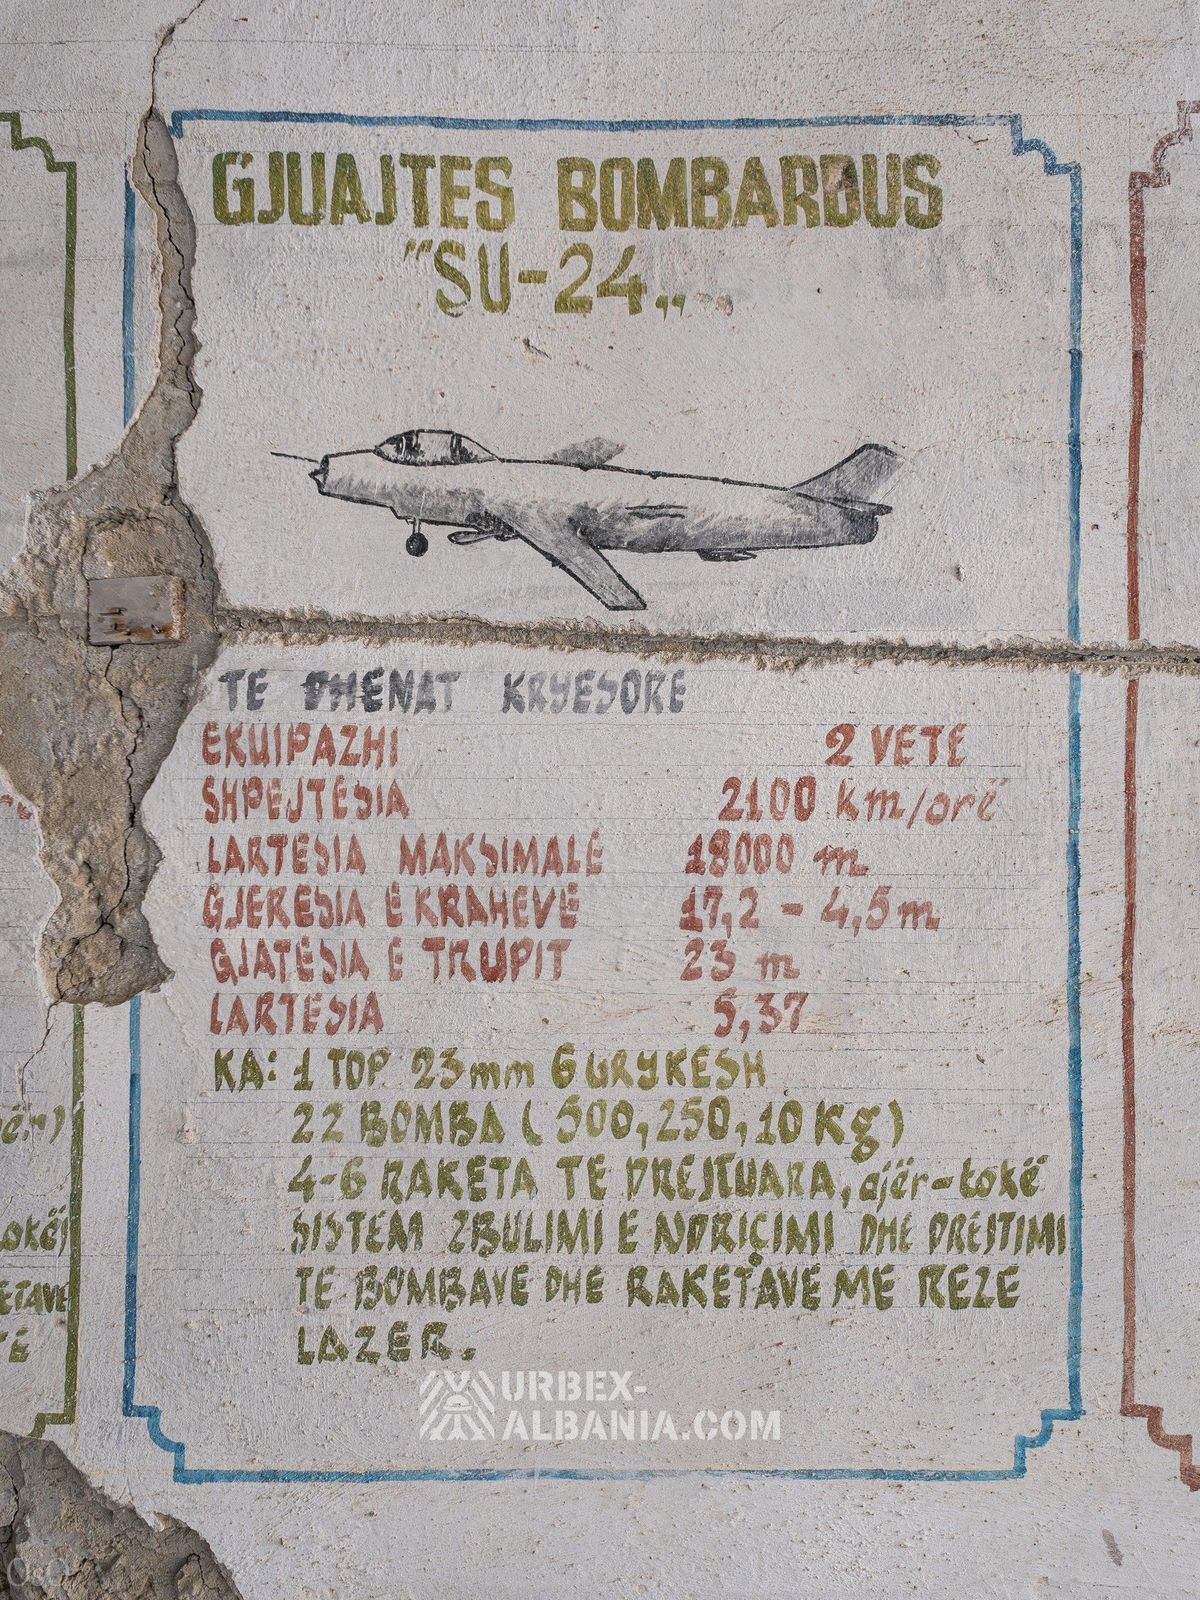 GJUAJTES BOMBARDUS
"SU-24„
TE DHENAT KRYESORE
EKUIPAZHI 2 VETE
SHPEJTESIA 2100 km/orë
LARTESIA MAKSIMALE 18000 m
GJERESIA E KRAHEVE 17,2 - 4,5 m
GJATESIA E TRUPIT 23 m
LARTESIA 5,37
KA: 1 TOP 23mm 6 GRYKESH
22 BOMBA (500,250,10 Kg)
4-6 RAKETA TE DREJTUARA, ajër-tokë
SISTEM ZBULIMI E NDRIÇIMI DHE DREJTIMI
TE BOMBAVE DHE RAKETAVE ME REZE
LAZER.
URBEX-
ALBANIA.COM